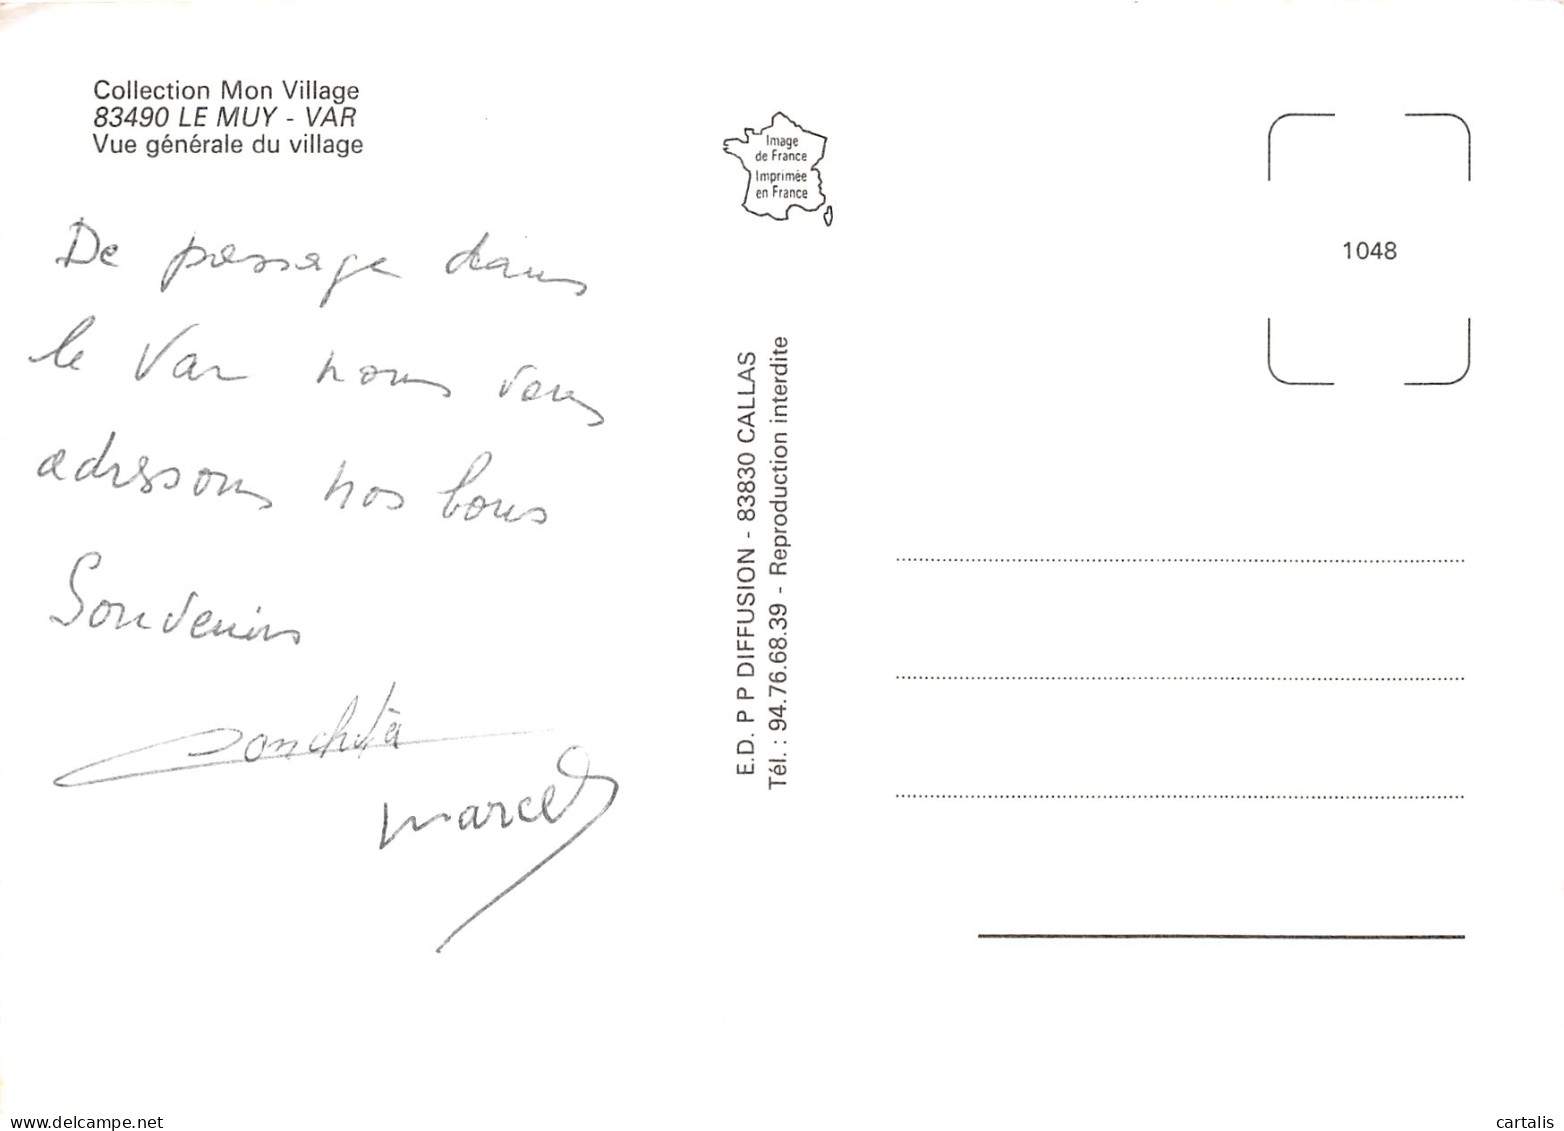 Collection Mon Village
83490 LE MUY - VAR
Vue générale du village
De passage dans
le Var nous vous
adressons nos bons
Souvenirs
Conchita
Marcel
Image
de France
Imprimée
en France
E.D. P P DIFFUSION - 83830 CALLAS
Tél. : 94.76.68.39 - Reproduction interdite
1048
www.delcampe.net
cartalis